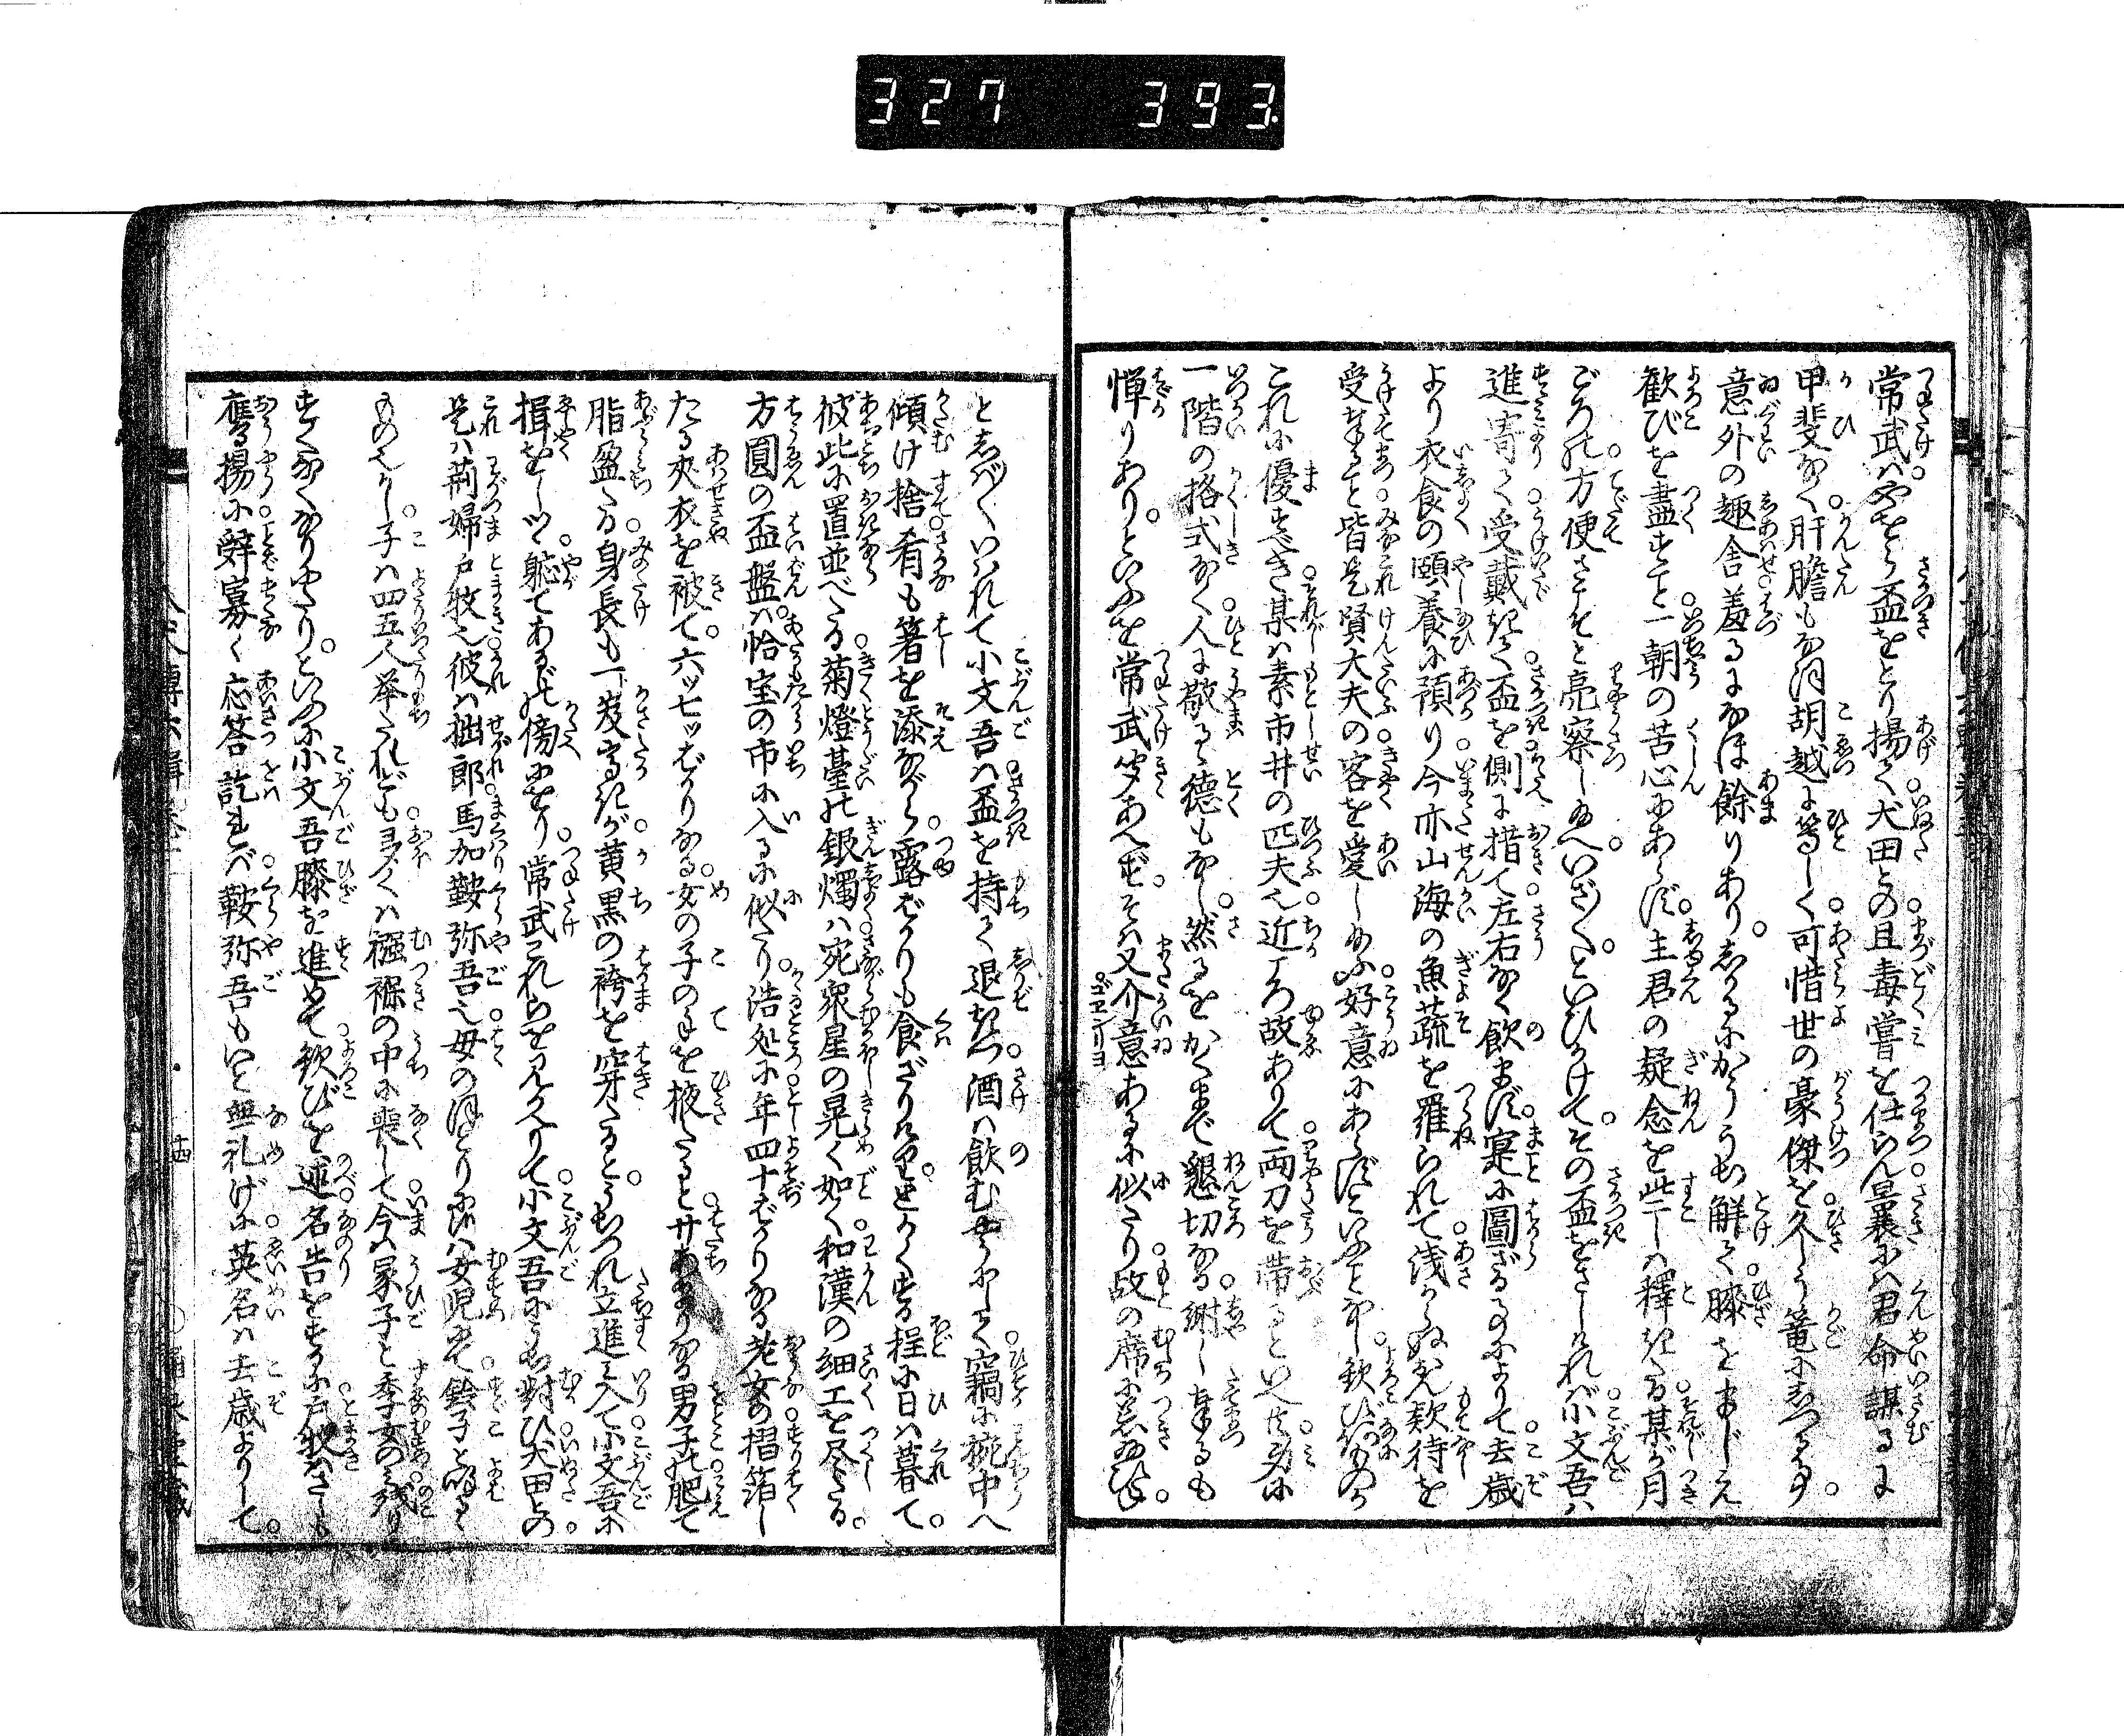 327 393
常武はやをら盃をとり揚て犬田との且毒嘗を仕らん曩には君命謀るに
甲斐なく肝膽もなほ胡越に等しく可惜世の豪傑を久しう篭にしつる事
意外の趣舎羞るになほ餘りありしかるにかううち解て膝をまじえ
歓びを盡すこと一朝の苦心にあらず主君の疑念を些しは釋きたる某が月
ごろの方便さこそと亮察し給へいざ〳〵といひかけてその盃をさしければ小文吾は
進寄て受戴きて盃を側に措て左右なく飲まず寔に圖ざる事によりて去歳
より衣食の頤養に預り今亦山海の魚蔬を羅られて浅からぬ款待を
受奉ること皆是賢大夫の客を愛し給ふ好意にあらずといふことなし歓び何ものか
これに優すべき某は素市井の匹夫也近ころ故ありて両刀を帯るといへども身に
一階の格式なく人に敬るゝ徳もなし然るをかくまで懇切なる謝し奉るも
憚りありといふを常武聞あへずそは又介意あるに似たり故の席に著給ひね
ゴヱンリヨ
としば〳〵いはれて小文吾は盃を持て退きつ酒は飲むやうにして竊に椀中へ
傾け捨肴も箸を添ながら露ばかりも食ざりけりとかくする程に日は暮て
彼此に置並べたる菊燈臺の銀燭は宛衆星の晃く如く和漢の細工を尽したる
方圓の盃盤は恰宝の市に入るに似たり浩処に年四十ばかりなる老女の摺箔し
たる夾衣を被て六ッ七ッばかりなる女の子の手を掖たると廿あまりなる男子の肥て
脂盈たる身長も一岌高きが黄黒の袴を穿たるとうちつれ立進み入て小文吾に
揖をしつゝ軈てあるじの傍にをり常武これらを見かへりて小文吾にうち對ひ犬田との
是は荊婦戸牧也彼は拙郎馬加鞍弥吾也母のほとりなるは女児にて鈴子と喚るゝ
ものぞかし子は四五人挙たれども多くは襁褓の中に喪して今は冢子と季女のみ残り
すくなくなりにたりといふに小文吾膝を進めて歓びを述名告をするに戸牧さしも
鷹揚に辞寡く応答訖れば鞍弥吾もいと無礼げに英名は去歳よりして